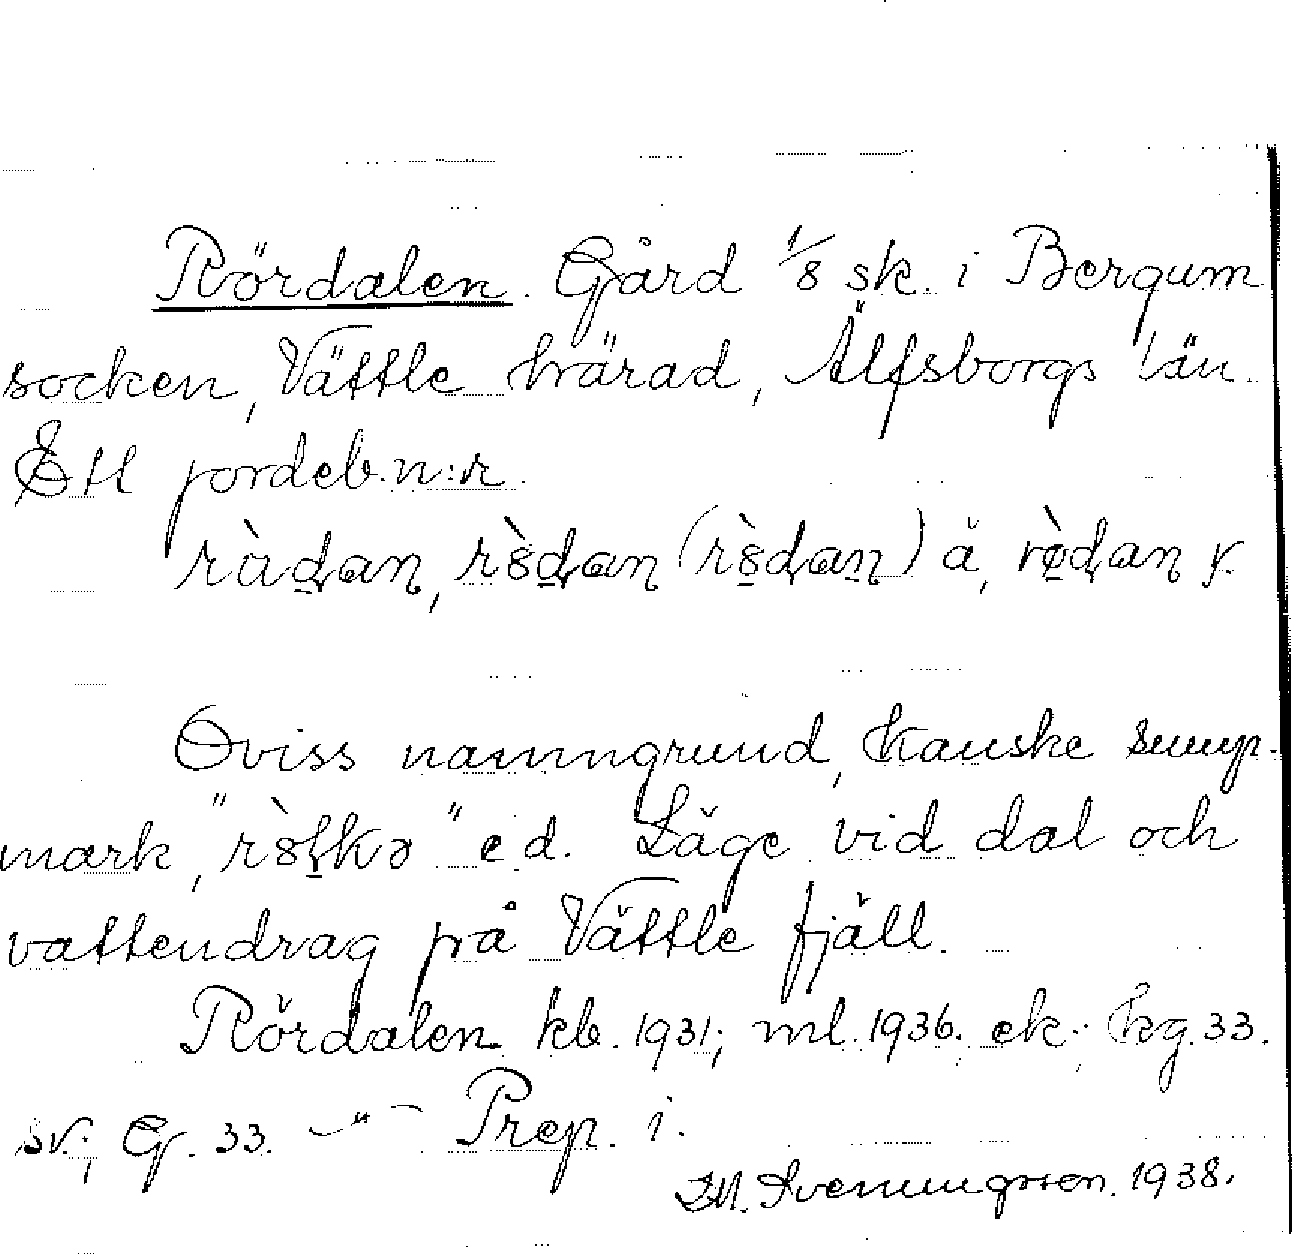 Rördalen. Gård 1/8 sk. i Bergum
socken, Vättle härad, Älfsborgs län.
Ett jordeb.n:r.
ä, y.
Oviss namngrund, kanske sump-
mark, " " e d. Läge vid dal och
vattendrag på Vättle fjäll.
Rördalen kb. 1931; ml. 1936. ek; hg. 33.
sv.; G. 33. —"— Prep. i.
Svenungsson. 1938.